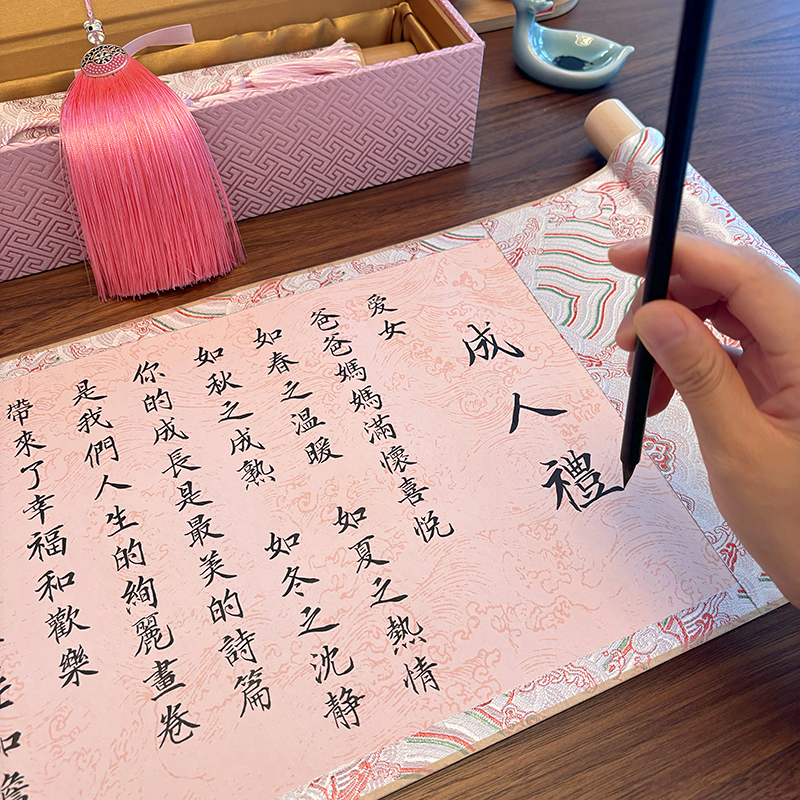 成人禮
爱女
爸爸媽媽滿懷喜悦
如春之温暖 如夏之熱情
如秋之成熟 如冬之沈静
你的成長是最美的詩篇
是我們人生的絢麗畫卷
帶來了幸福和歡樂